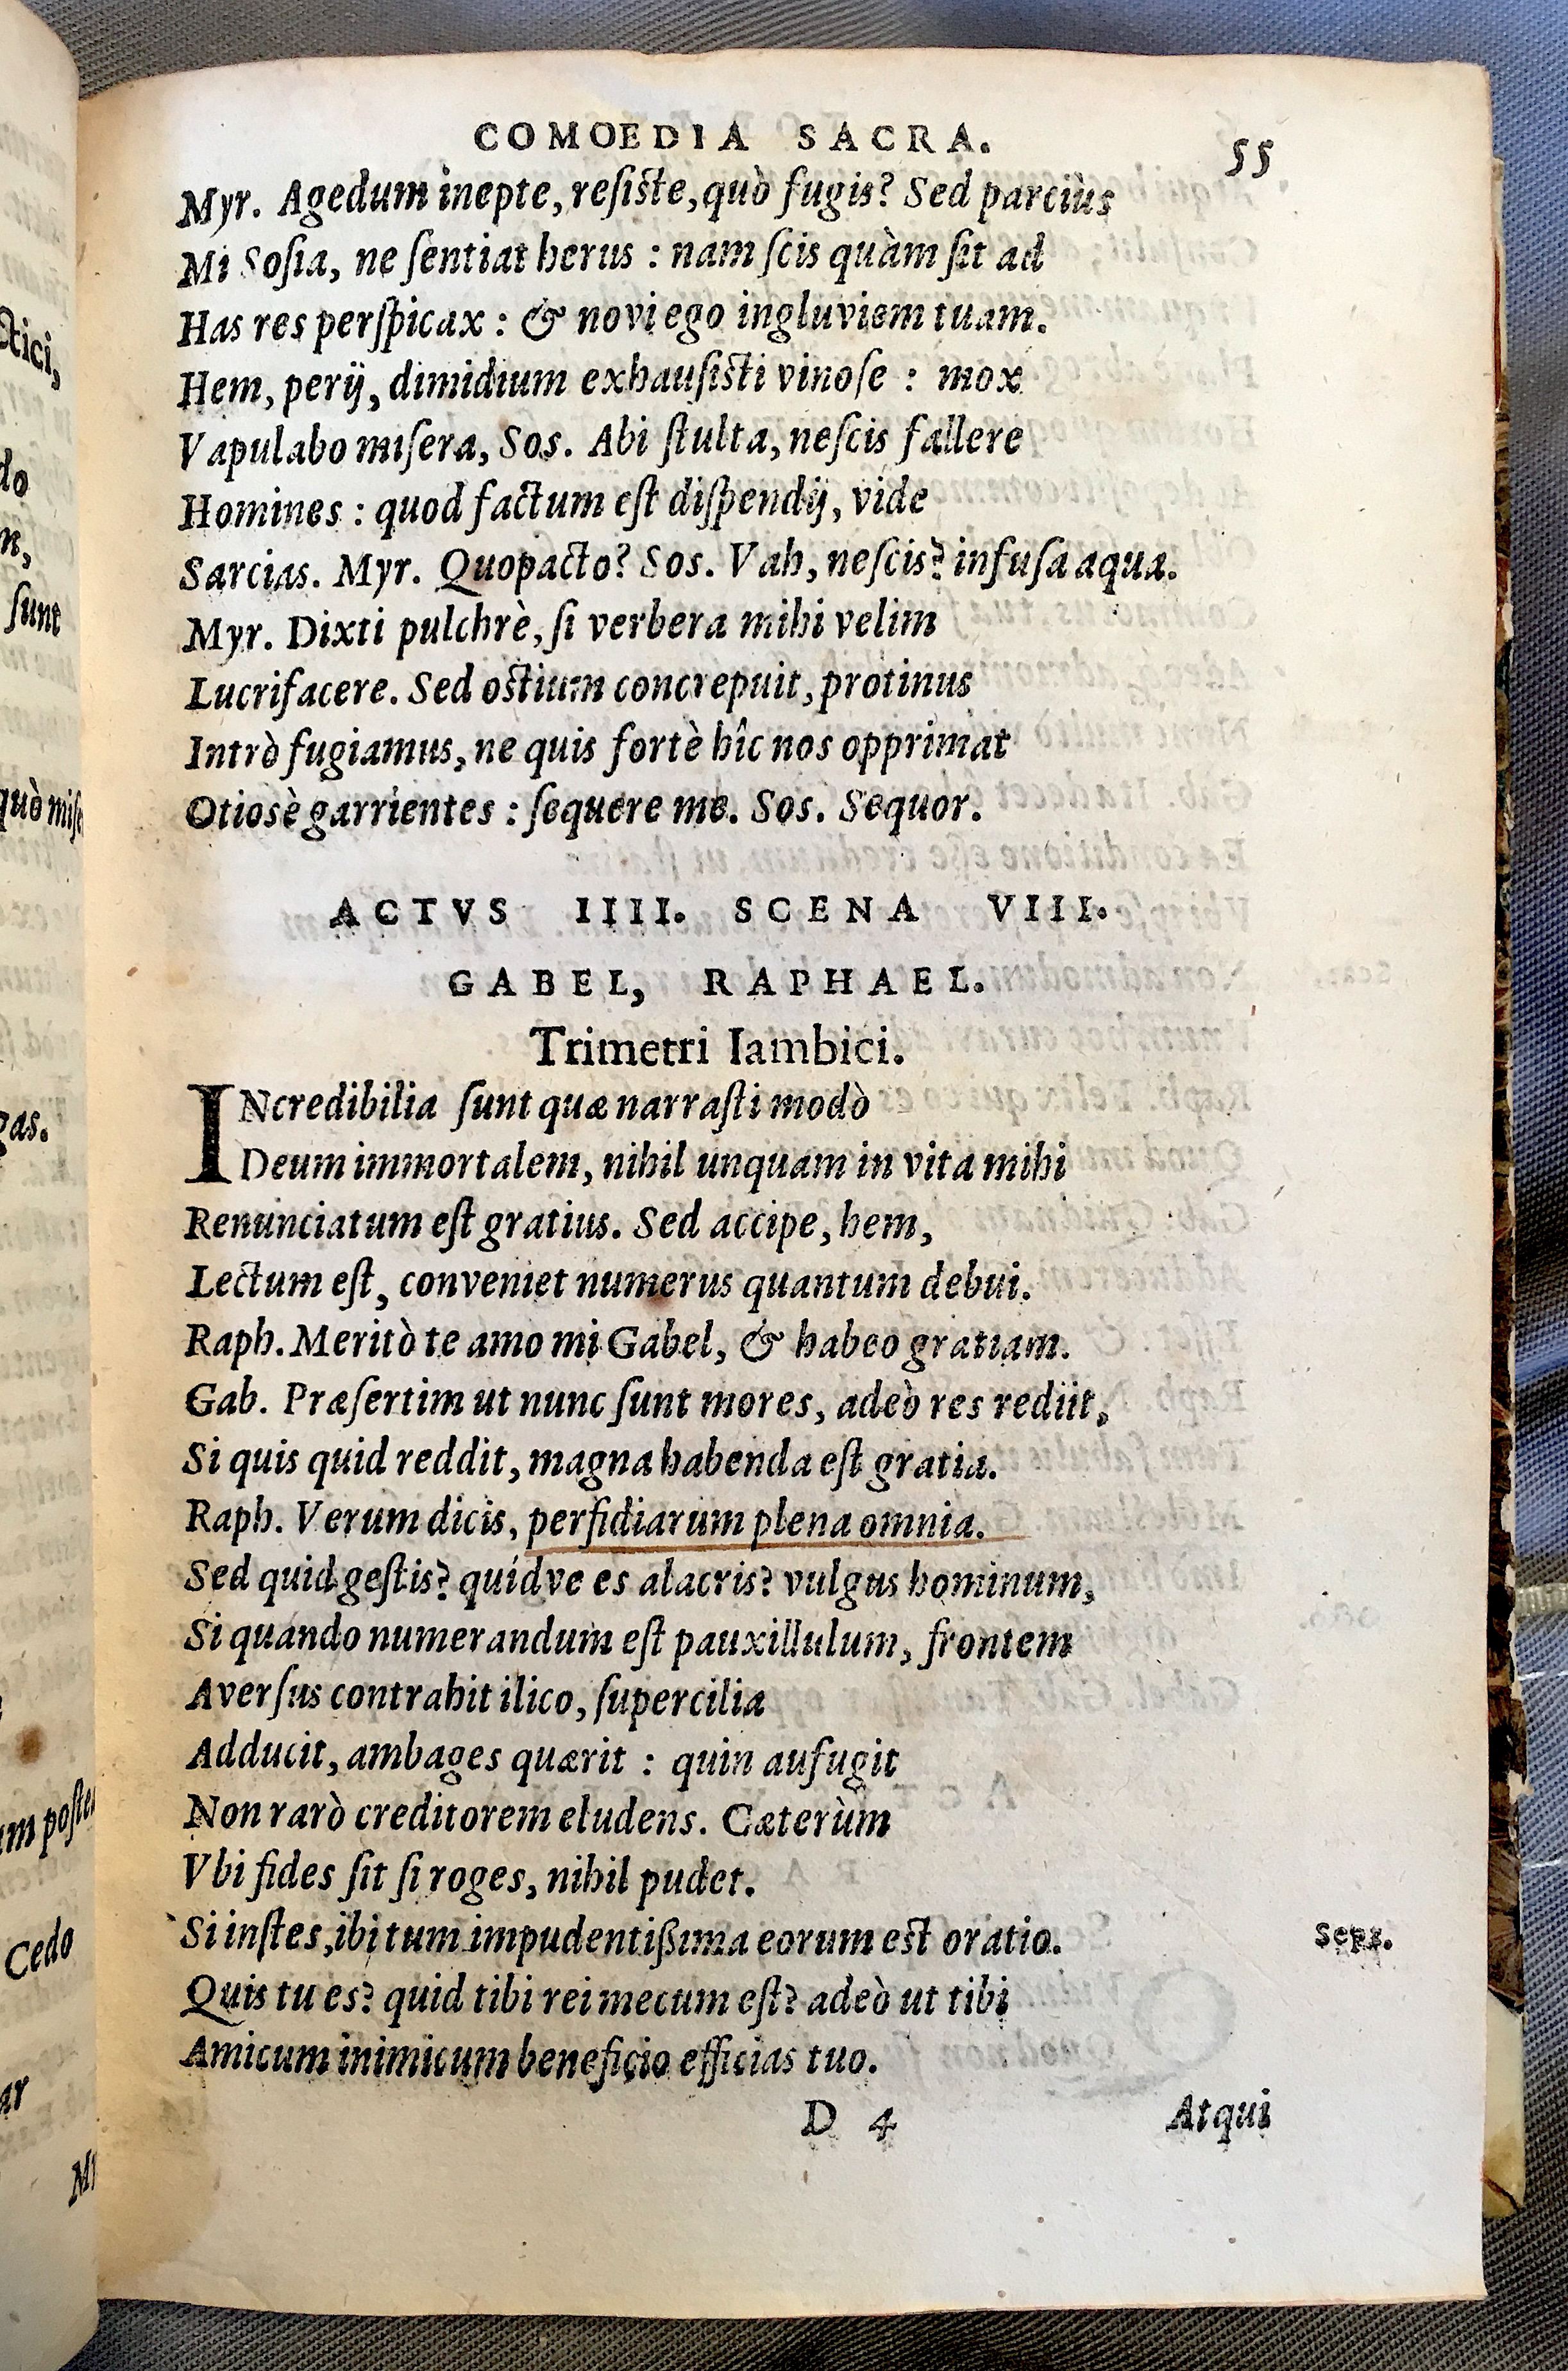 COMOEDIA SACRA. 55
Myr. Agedum inepte, resiste, quò fugis? Sed parciùs
Mi Sosia, ne sentiat herus : nam scis quàm sit ad
Has res perspicax : & novi ego ingluviem tuam.
Hem, perij, dimidium exhausisti vinose : mox
Vapulabo misera, Sos. Abi stulta, nescis fallere
Homines : quod factum est dispendij, vide
Sarcias. Myr. Quopacto? Sos. Vah, nescis? infusa aqua.
Myr. Dixti pulchrè, si verbera mihi velim
Lucrifacere. Sed ostium concrepuit, protinus
Intrò fugiamus, ne quis fortè hîc nos opprimat
Otiosè garrientes : sequere me. Sos. Sequor.
ACTVS IIII. SCENA VIII.
GABEL, RAPHAEL.
Trimetri Iambici.
INcredibilia sunt quæ narrasti modò
Deum immortalem, nihil unquam in vita mihi
Renunciatum est gratius. Sed accipe, hem,
Lectum est, conveniet numerus quantum debui.
Raph. Meritò te amo mi Gabel, & habeo gratiam.
Gab. Præsertim ut nunc sunt mores, adeò res rediit,
Si quis quid reddit, magna habenda est gratia.
Raph. Verum dicis, perfidiarum plena omnia.
Sed quid gestis? quidve es alacris? vulgus hominum,
Si quando numerandum est pauxillulum, frontem
Aversus contrahit ilico, supercilia
Adducit, ambages quærit : quin aufugit
Non rarò creditorem eludens. Cæterùm
Vbi fides sit si roges, nihil pudet.
Si instes, ibi tum impudentißima eorum est oratio. Seps.
Quis tu es? quid tibi rei mecum est? adeò ut tibi
Amicum inimicum beneficio efficias tuo.
D 4 Atqui
ctici,
do
n,
sunt
quò mise
gas.
um poste
Cedo
ar